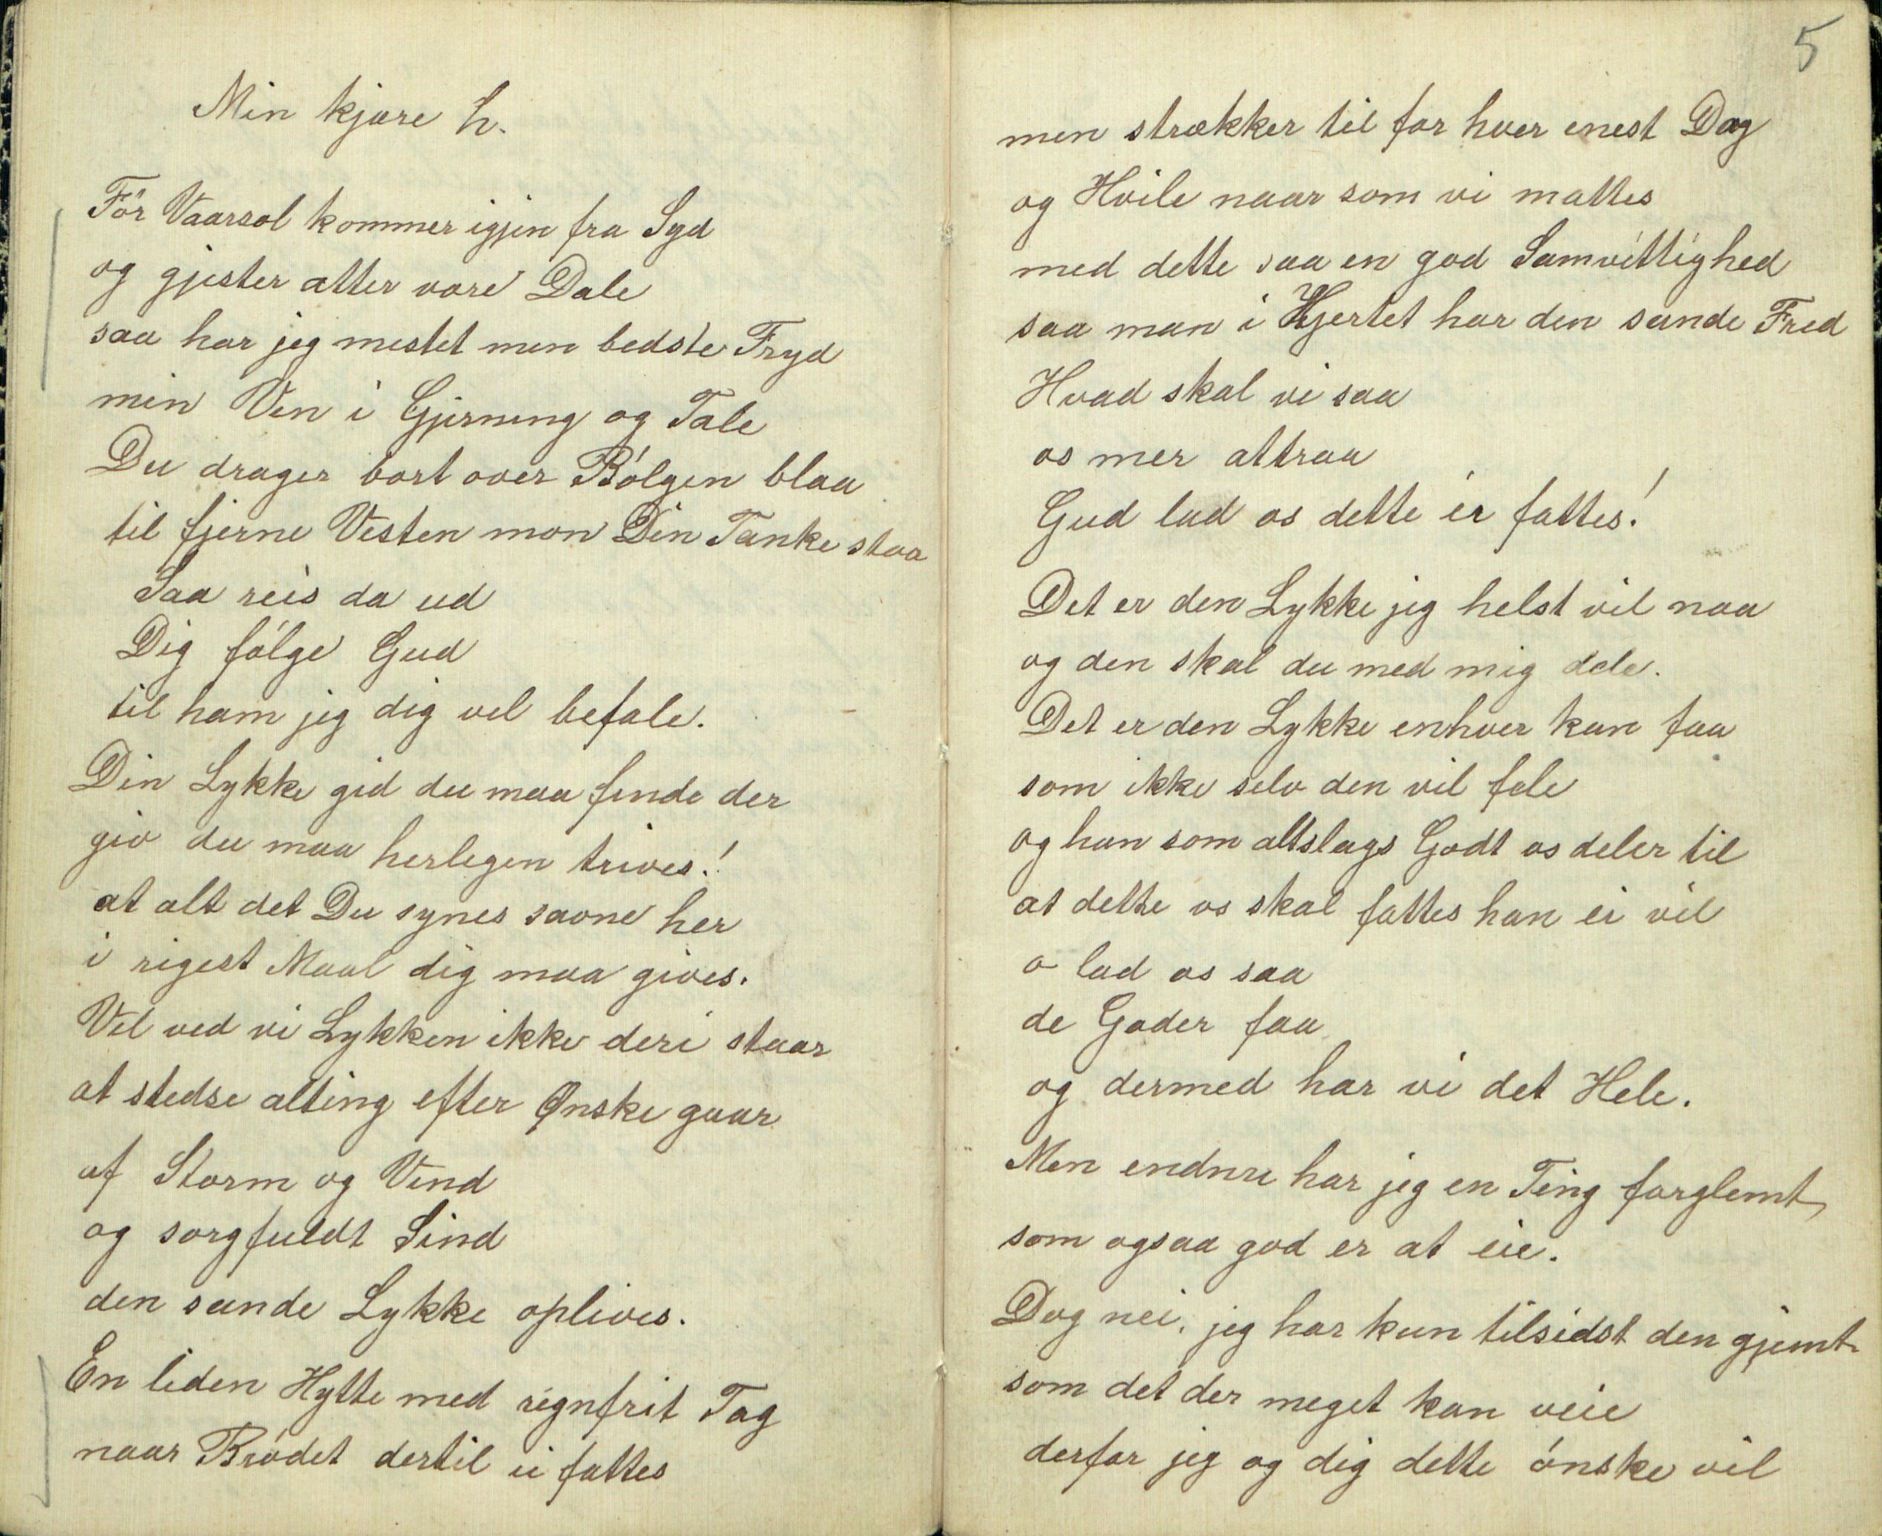 Min kjære h.
För Vaarsol kommer igjen fra Syd
og gjester atter vore Dale
saa har jeg mestet min bedste Fryd
min Ven i Gjerning og Tale
Du drager bort over Bólgen blaa
til fjerne Vesten mon Din Tanke staa
Saa reis da ud
Dig fólge Gud
til ham jeg dig vel befale.
Din Lykke gid du maa finde der
giv du maa herligen trives!
at alt det Du synes savne her
i rigest Maal dig maa gives.
Vel ved vi Lykken ikke deri staar
at stedse alting efter Ønske gaar
af Storm og Vind
og sorgfuldt Sind
den sande Lykke oplives.
En liden Hytte med regnfrit Tag
naar Bródet dertil ei fattes
5
men strækker til for hver enest Dag
og Hvile naar som vi mattes
med dette saa en god Samvittighed
saa man i Hjertet har den sande Fred
Hvad skal vi saa
os mer attraa
Gud lad os dette ér fattes!
Det er den Lykke jeg helst vil naa
og den skal du med mig dele.
Det er den Lykke enhver kan faa
som ikke selv den vil fele
og han som altslags Godt os deler til
at dette os skal fattes han ei vil
o lad os saa
de Goder faa
og dermed har vi det Hele.
Men endnu har jeg en Ting forglemt,
som ogsaa god er at eie.
Dog nei, jeg har kun tilsidst den gjemt
som det der meget kan veie
derfor jeg og dig dette ónske vil